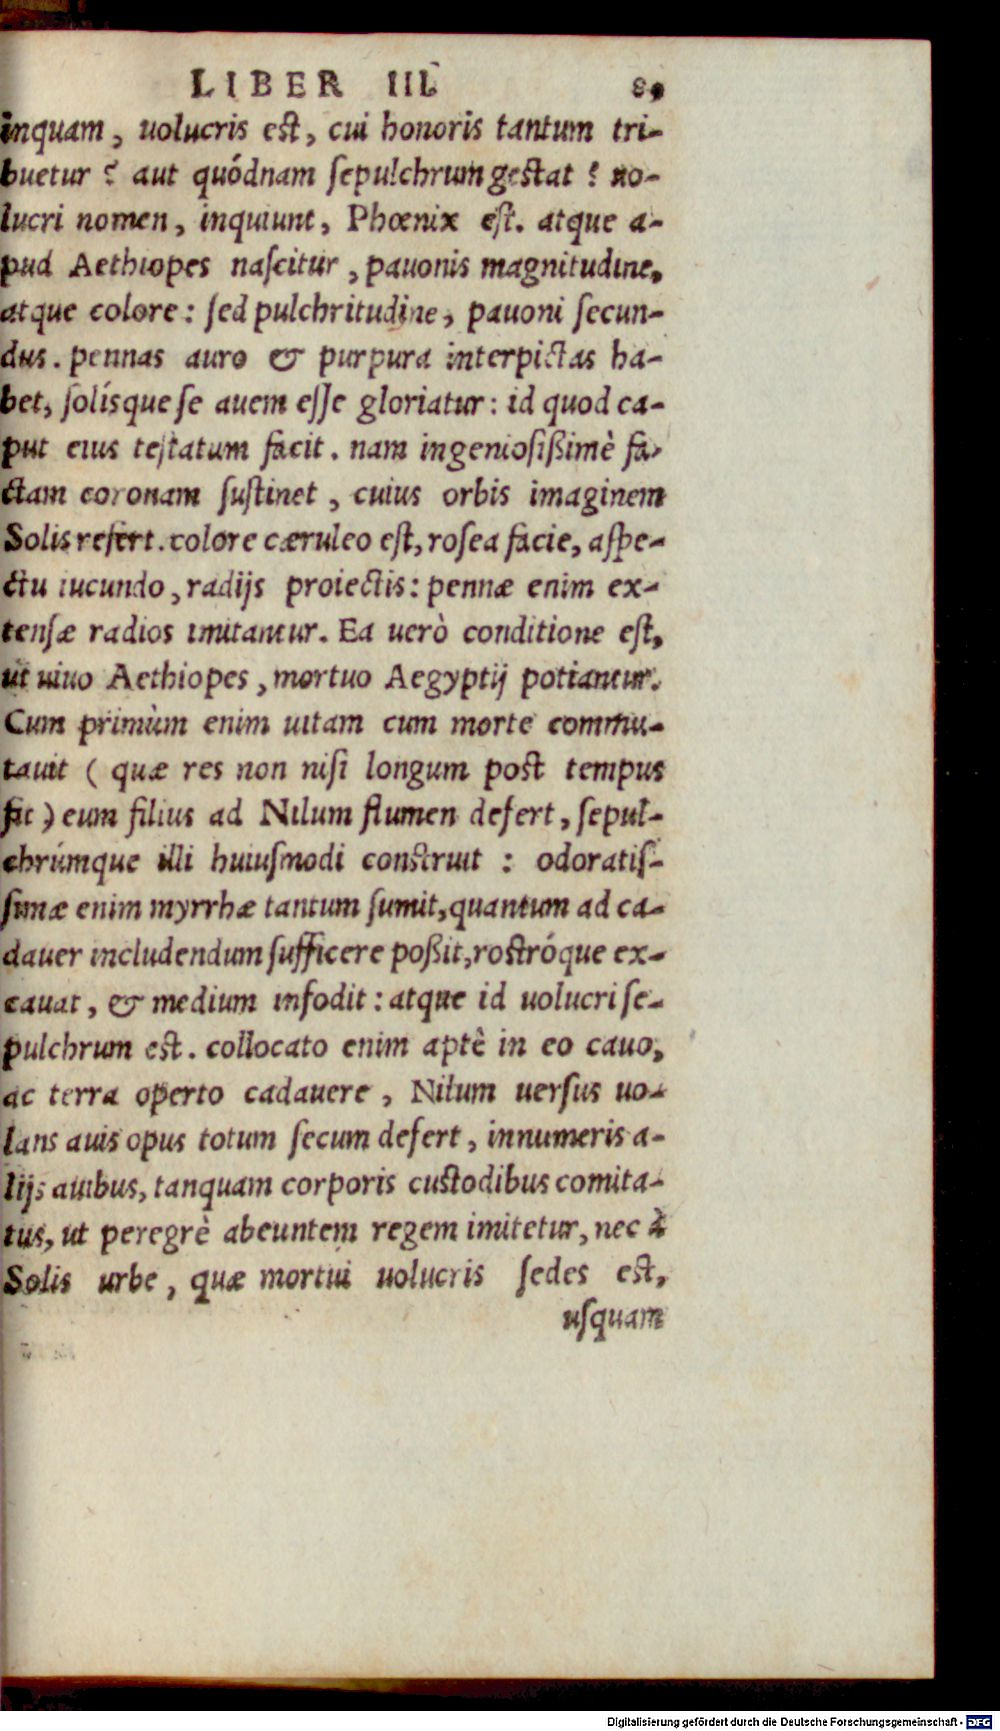 LIBER III. 89
inquam, uolucris est, cui honoris tantum tri-
buetur? aut quódnam ſepulchrum gestat? uo-
lucri nomen, inquiunt, Phœnix eſt. atque a-
pud Aethiopes naſcitur, pauonis magnitudine,
atque colore: ſed pulchritudine, pauoni ſecun-
dus. pennas auro & purpura interpictas ha-
bet, ſolísque ſe auem eſſe gloriatur: id quod ca-
put eius teſtatum facit. nam ingenioſißimè fa-
ctam coronam ſuſtinet, cuius orbis imaginem
Solis refert. colore cæruleo eſt, roſea facie, aſpe-
ctu iucundo, radijs proiectis: pennæ enim ex-
tenſæ radios imitantur. Ea uerò conditione eſt,
ut uiuo Aethiopes, mortuo Aegyptij potiantur.
Cum primùm enim uitam cum morte commu-
tauit (quæ res non niſi longum post tempus
fit) eum filius ad Nilum flumen defert, ſepul-
chrúmque illi huiuſmodi construit: odoratiſ-
ſimæ enim myrrhæ tantum ſumit, quantum ad ca-
dauer includendum ſufficere poßit, rostróque ex-
cauat, & medium infodit: atque id uolucri ſe-
pulchrum est. collocato enim aptè in eo cauo,
ac terra operto cadauere, Nilum uerſus uo-
lans auis opus totum ſecum defert, innumeris a-
lijs auibus, tanquam corporis custodibus comita-
tus, ut peregrè abeuntem regem imitetur, nec à
Solis urbe, quæ mortui uolucris ſedes eſt,
uſquam
Digitalisierung gefördert durch die Deutsche Forschungsgemeinschaft - DFG